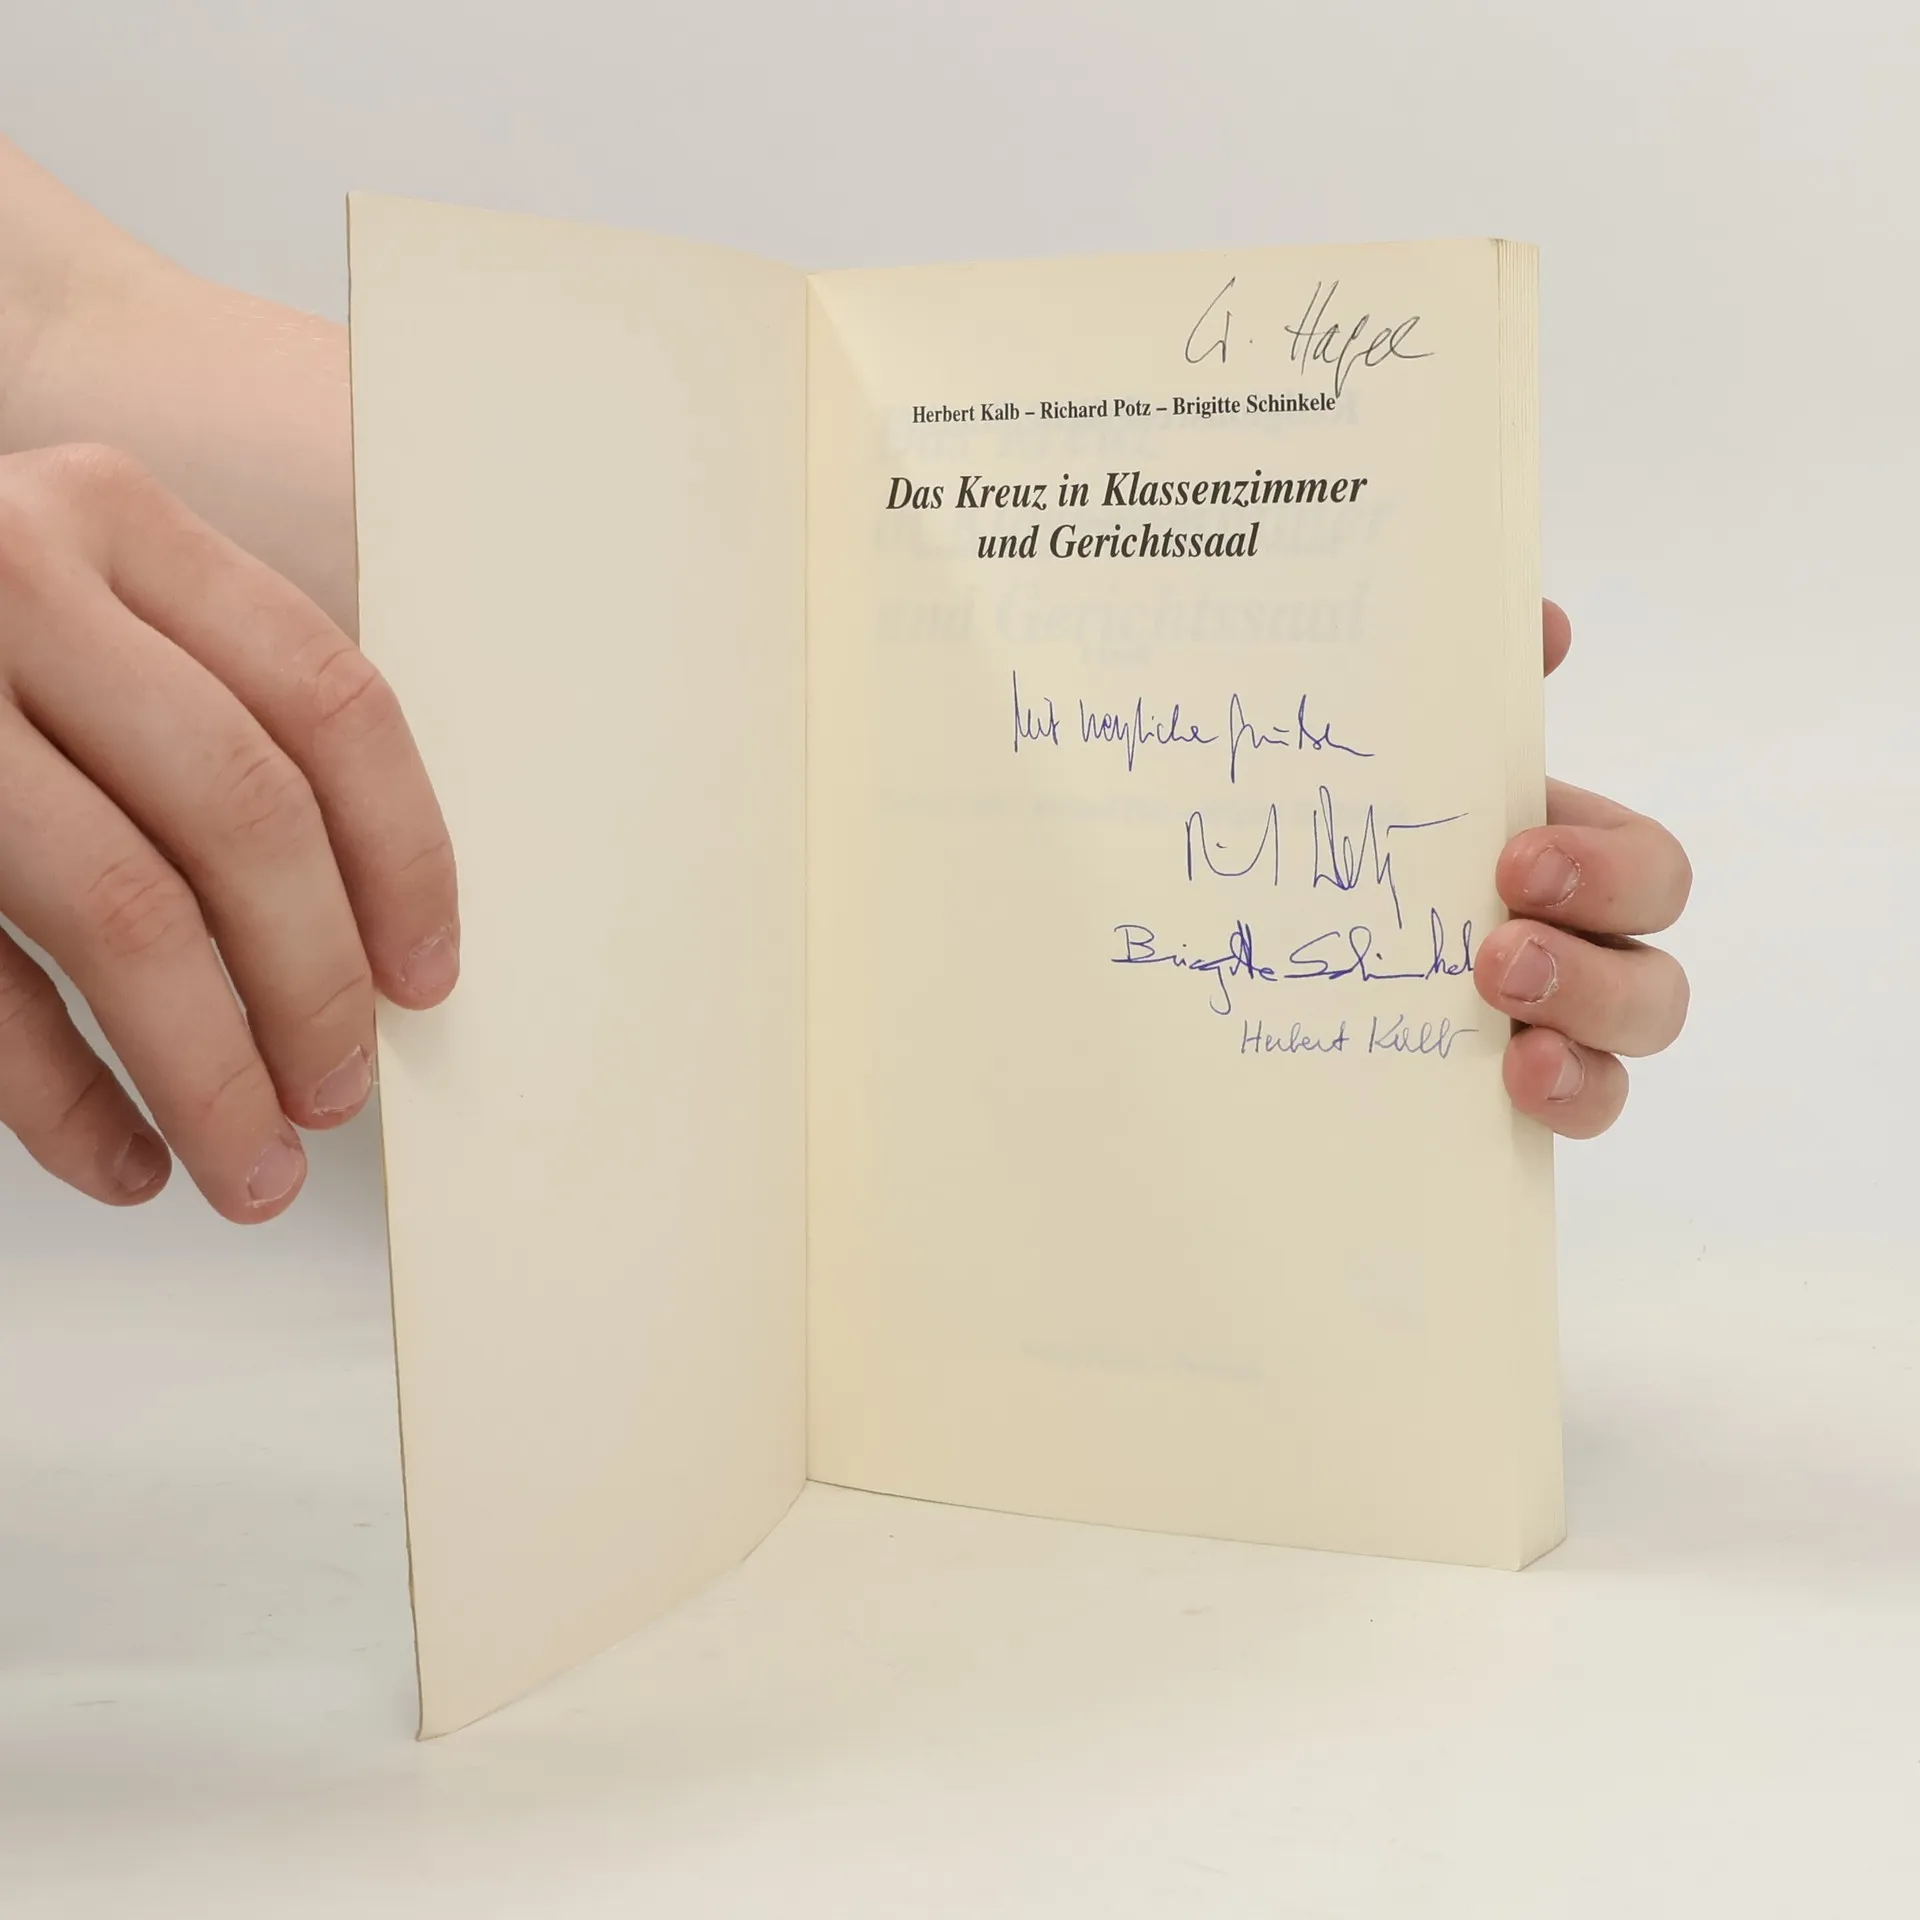 G. Hagel
Herbert Kalb – Richard Potz – Brigitte Schinkele
Das Kreuz in Klassenzimmer
und Gerichtssaal
Mit herzlichen Grüßen
Richard Potz
Brigitte Schinkel
Herbert Kalb